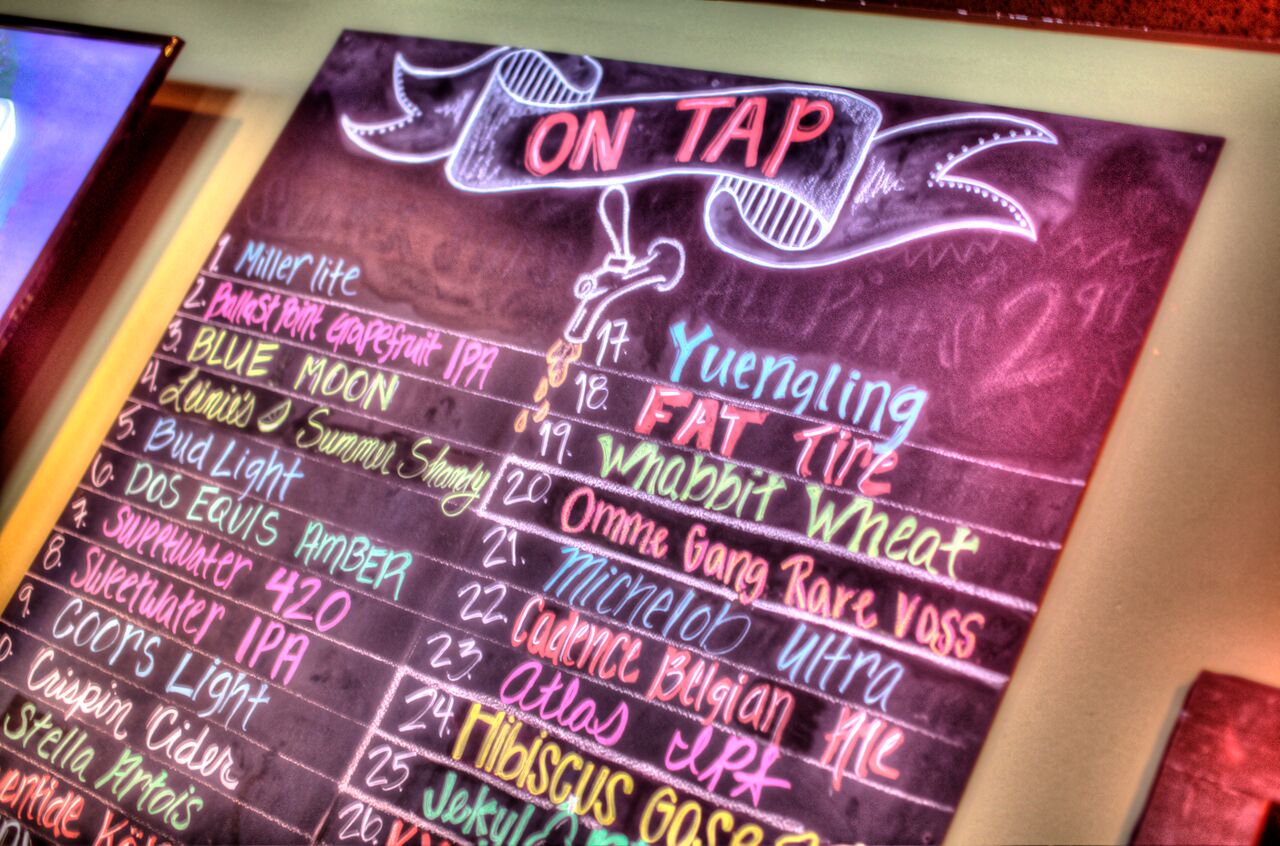 ON TAP
1. Miller lite
2. Ballast Point Grapefruit IPA
3. BLUE MOON
4. Leinie's Summer Shandy
5. Bud Light
6. DOS EQUIS AMBER
7. Sweetwater 420
8. Sweetwater IPA
9. COORS Light
Crispin Cider
Stella Artois
17. Yuengling
18. FAT Tire
19. Whabbit Wheat
20. Omme Gang Rare Voss
21. Michelob Ultra
22. Cadence Belgian Ale
23. Atlas IPA
24. Hibiscus Gose
25. Jekyl
26.